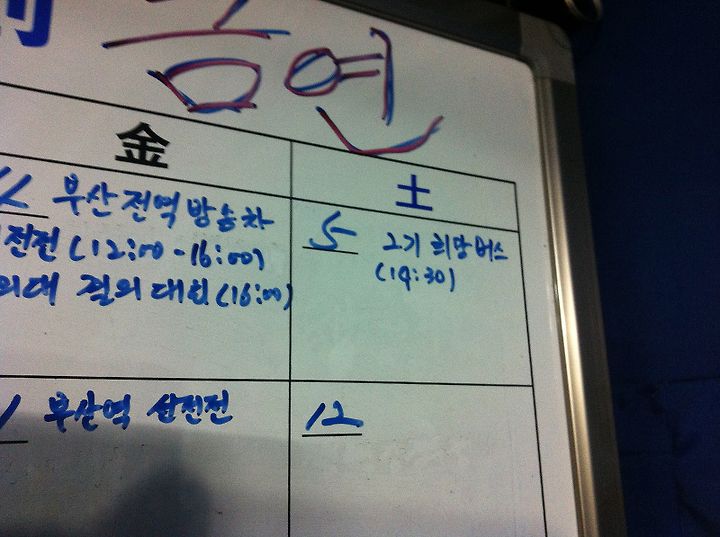 금연
金
土
부산 전역 방송차
선전전 (12:00-16:00)
결의대회 (16:00)
5
2기 희망버스
(14:30)
부산역 선전전
12